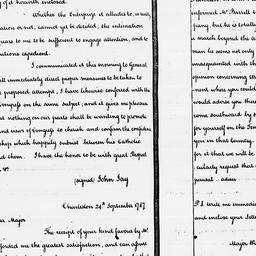 of it herewith enclosed.
Whether the Enterprize it alludes to, is me
tation or not, cannot yet be decided; the intimation
pears to me to be sufficient to engage attention, and to
cautions expedient.
I communicated it this morning to General
all immediately direct proper measures to be taken to
e proposed attempt, I have likewise conferred with the
Congress on the same subject; and it gives me pleasure
at nothing on our parts shall be wanting to promote
and views of Congress to cherish and confirm the confiden
ship which happily subsist between his Catholic
nd them. I have the honor to be with great Respect
&c.
(signed) John Jay
Charleston 24th September 1787.
ear Major
The receipt of your hand favour by Mr.
fforded me the greatest satisfaction, and can assure
informed Mr. Farrell to
pany, but he is totally
a march beyond the a
man he seems not only
unacquainted with the
opinion concerning se
ment where you could
would advise you there
come southward by s
for yourself on the Ten
you in that Country.
for it that we will be
cularly request that s
pensed. adieu
P.S. write me immedia
and enclose your Lette
Major Wh